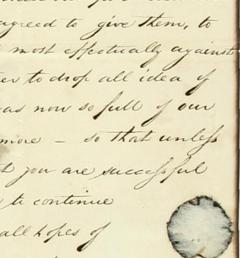 agreed to give them, to
most effectually against
to drop all idea of
was now so full of our
more – so that unless
you are successful
to continue
all hopes of